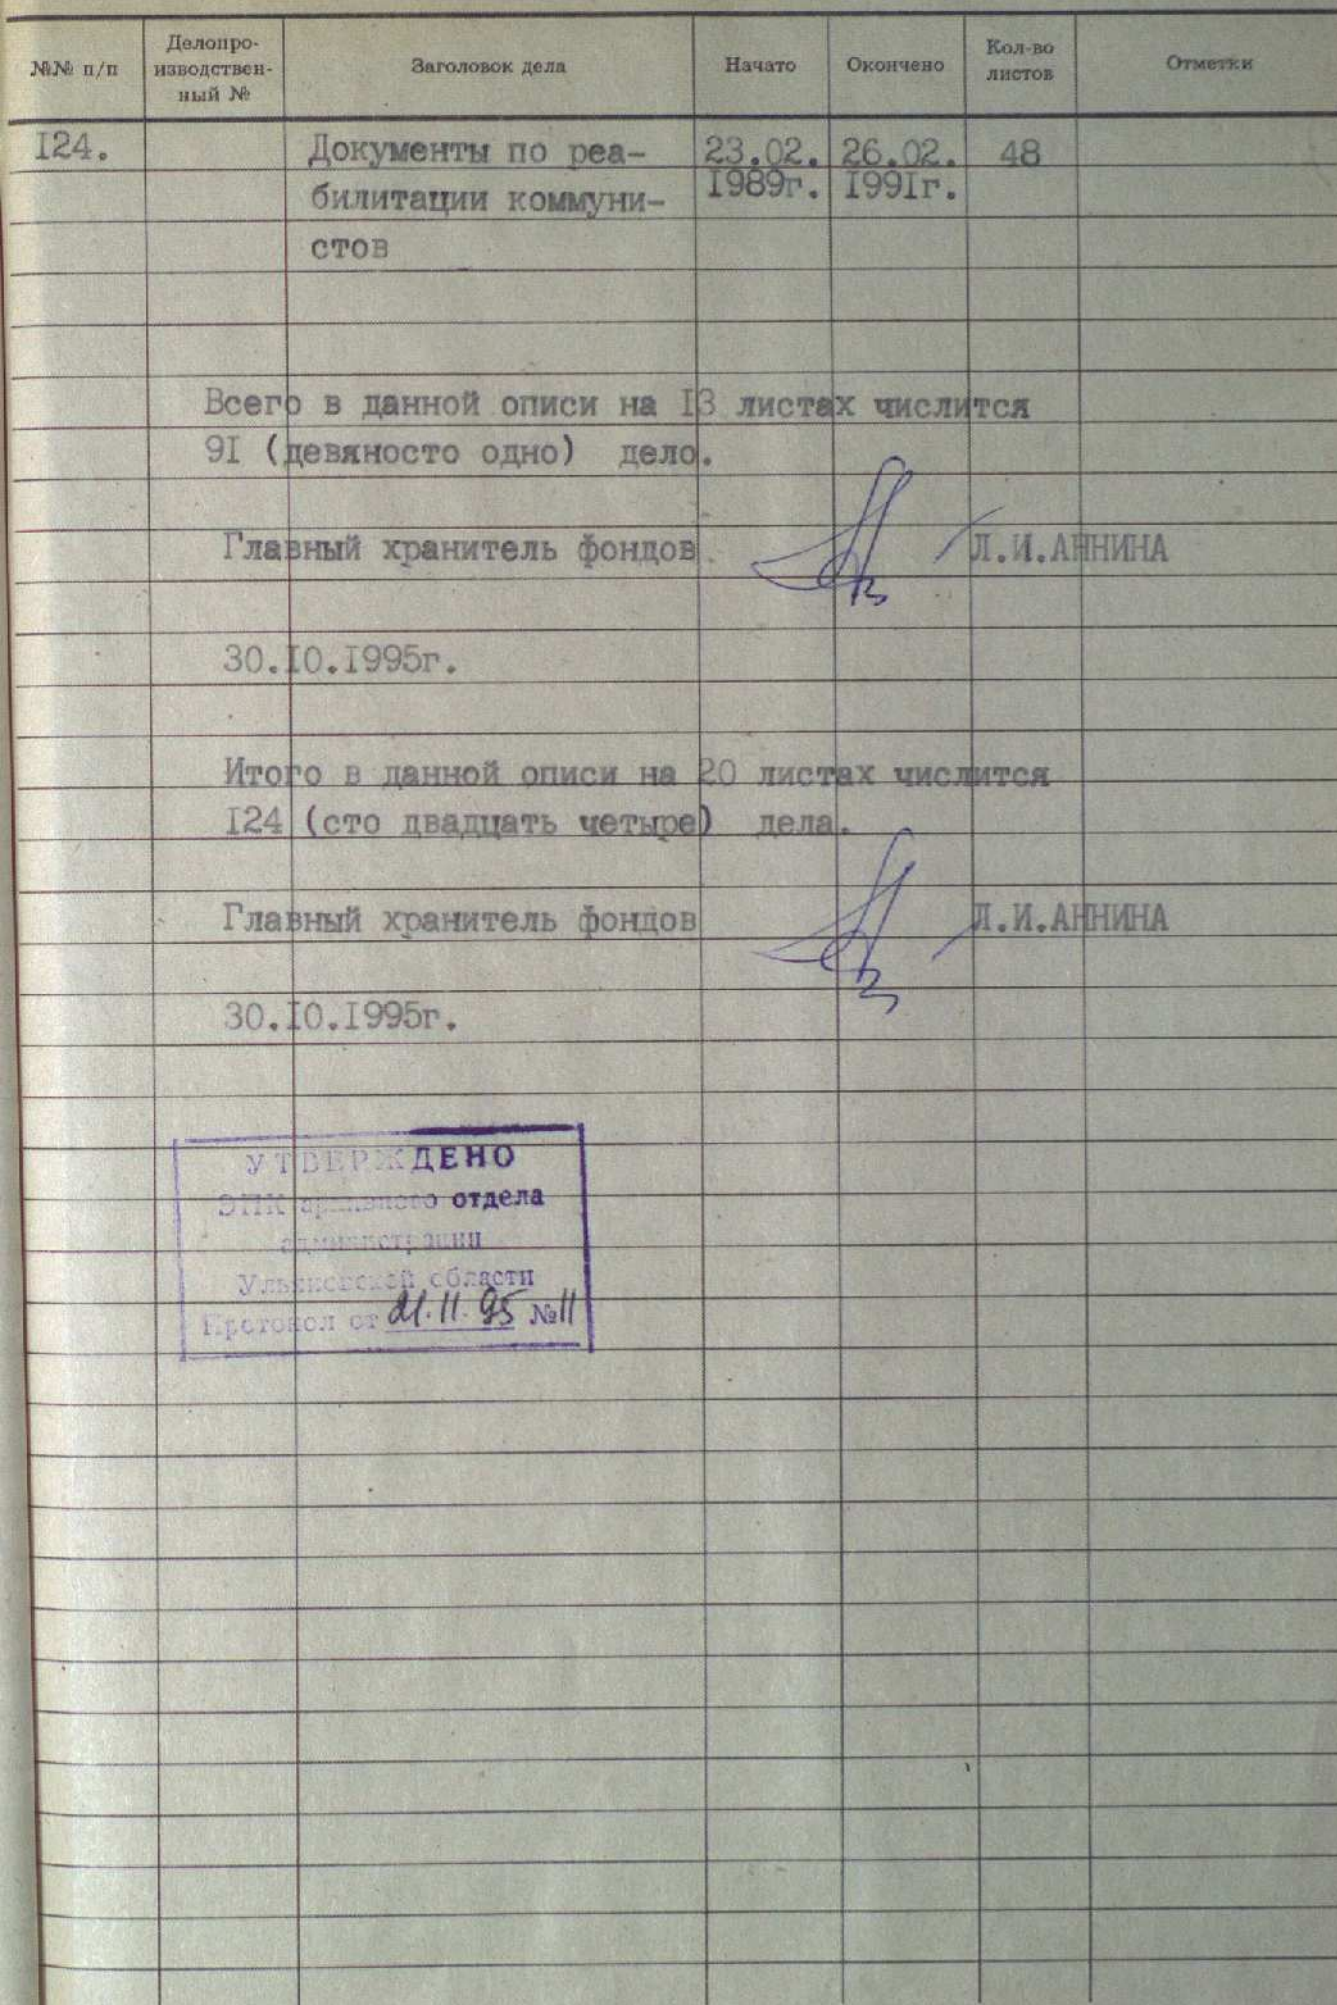 №№ п/п Делопро- Заголовок дела Начато Окончено Кол-во Отметки
изводствен- листов
ный №
I24. Документы по реа- 23.02. 26.02. 48
I989г. I99Iг.
билитации коммуни-
стов
Всего в данной описи на I3 листах числится
9I (девяносто одно) дело.
Главный хранитель фондов Л.И.АННИНА
30.I0.I995г.
Итого в данной описи на 20 листах числится
I24 (сто двадцать четыре) дела.
Главный хранитель фондов Л.И.АННИНА
30.I0.I995г.
УТВЕРЖДЕНО
ЭПК архивного отдела
администрации
Ульяновской области
Протокол от 21.11.95 №11